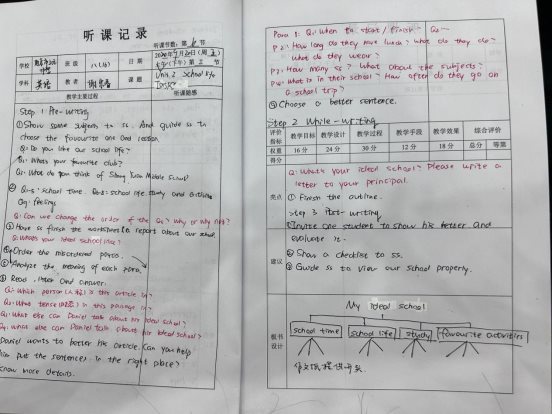 听课记录
听课节数：第 6 节
学校
班级 八(15)
日期
上午(下午)第 2 节
学科 英语
教者
课题 Unit 2 School life
教学主要过程
听课随感
Step 1 Pre-writing
① Show some subjects to ss. And guide ss to
choose the favourite one and reason.
Q: Do you like our school life?
Q: What's your favourite club?
Q: What do you think of Middle School
② school time. school life study and
Q4: feelings
Q: Can we change the order of the Qs? Why or why not?
③ Have ss finish the worksheet & report about our school.
Q: What's your ideal school like?
④ Order the misordered parts.
⑤ Analyze the meaning of each para.
⑥ Read letter and answer.
Q1: Which person(人称) is this article in?
Q2: What tense(时态) is this passage in?
Q3: What else can Daniel talk about his ideal school?
Q4: What else can Daniel talk about his ideal school?
Daniel wants to better his article. Can you help
him put the sentences in the right place?
know more details.
Para 1: Q: When to start / finish?
P2: How long do they have lunch? What do they do?
What do they wear?
P3: How many ss? What about the subjects?
P4: What is in their school? How often do they go on
a school trip?
⑦ Choose a better sentence.
Step 2 While-writing
评价指标 教学目标 教学设计 教学过程 教学手段 教学效果 综合评价
权重 16 分 24 分 30 分 12 分 18 分 总分 等第
得分
Q: What's your ideal school? Please write a
letter to your principal.
亮点
① Finish the outline.
Step 3 Post-writing
① Invite one student to show his letter and
evaluate it.
建议
② Show a checklist to ss.
③ Guide ss to view our school property.
My ideal school
板书设计
school time school life study favourite activities